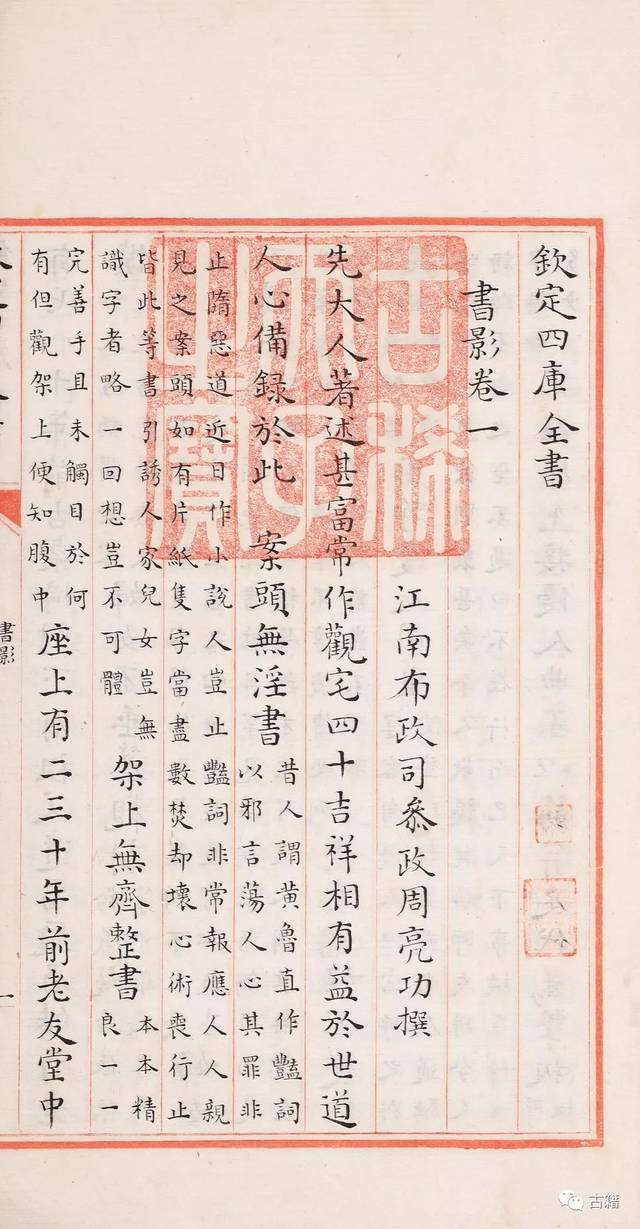 欽定四庫全書
書影卷一
江南布政司叅政周亮功撰
先大人著述甚富常作觀宅四十吉祥相有益於世道
人心備録於此 案頭無淫書
昔人謂黄魯直作豔詞
以邪言蕩人心其罪非
止隋惡道近日作小說人豈止豔詞非常報應人人親
見之案頭如有片紙隻字當盡數焚却壞心術喪行止
皆此等書引誘人家兒女豈無
識字者略一回想豈不可體
架上無齊整書
本本精
良一一
完善手且未觸目於何
有但觀架上便知腹中
座上有二三十年前老友堂中
書影
一
古稀天子之寶
古籍